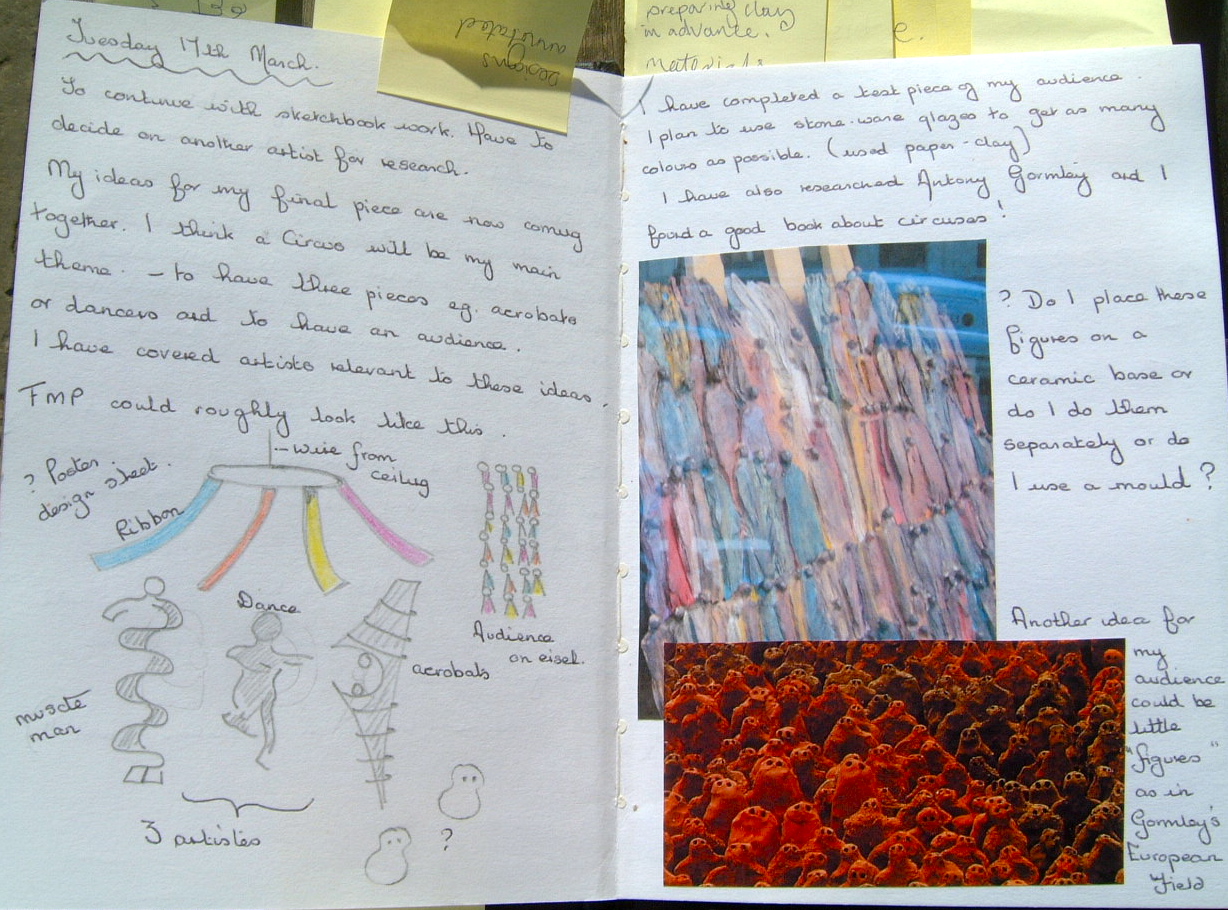 preparing clay
in advance.
e.
materials
Designs
annotated
Tuesday 17th March.
To continue with sketchbook work. Have to
decide on another artist for research.
My ideas for my final piece are now comug
together. I think a Circus will be my main
theme. - to have three pieces eg. acrobats
or dancers and to have an audience.
I have covered artists relevant to these ideas.
FMP could roughly look like this.
- wire from
ceilug
? Poster
design sheet.
Ribbon
Dance
Audience
on eisel.
acrobats
muscle
man
3 artistes
?
I have completed a test piece of my audience.
I plan to use stone-ware glazes to get as many
colours as possible. (used paper-clay)
I have also researched Antony Gormley and I
found a good book about circuses!
? Do I place these
figures on a
ceramic base or
do I do them
separately or do
I use a mould?
Another idea for
my
audience
could be
little
"figures"
as in
Gormley's
European
Field